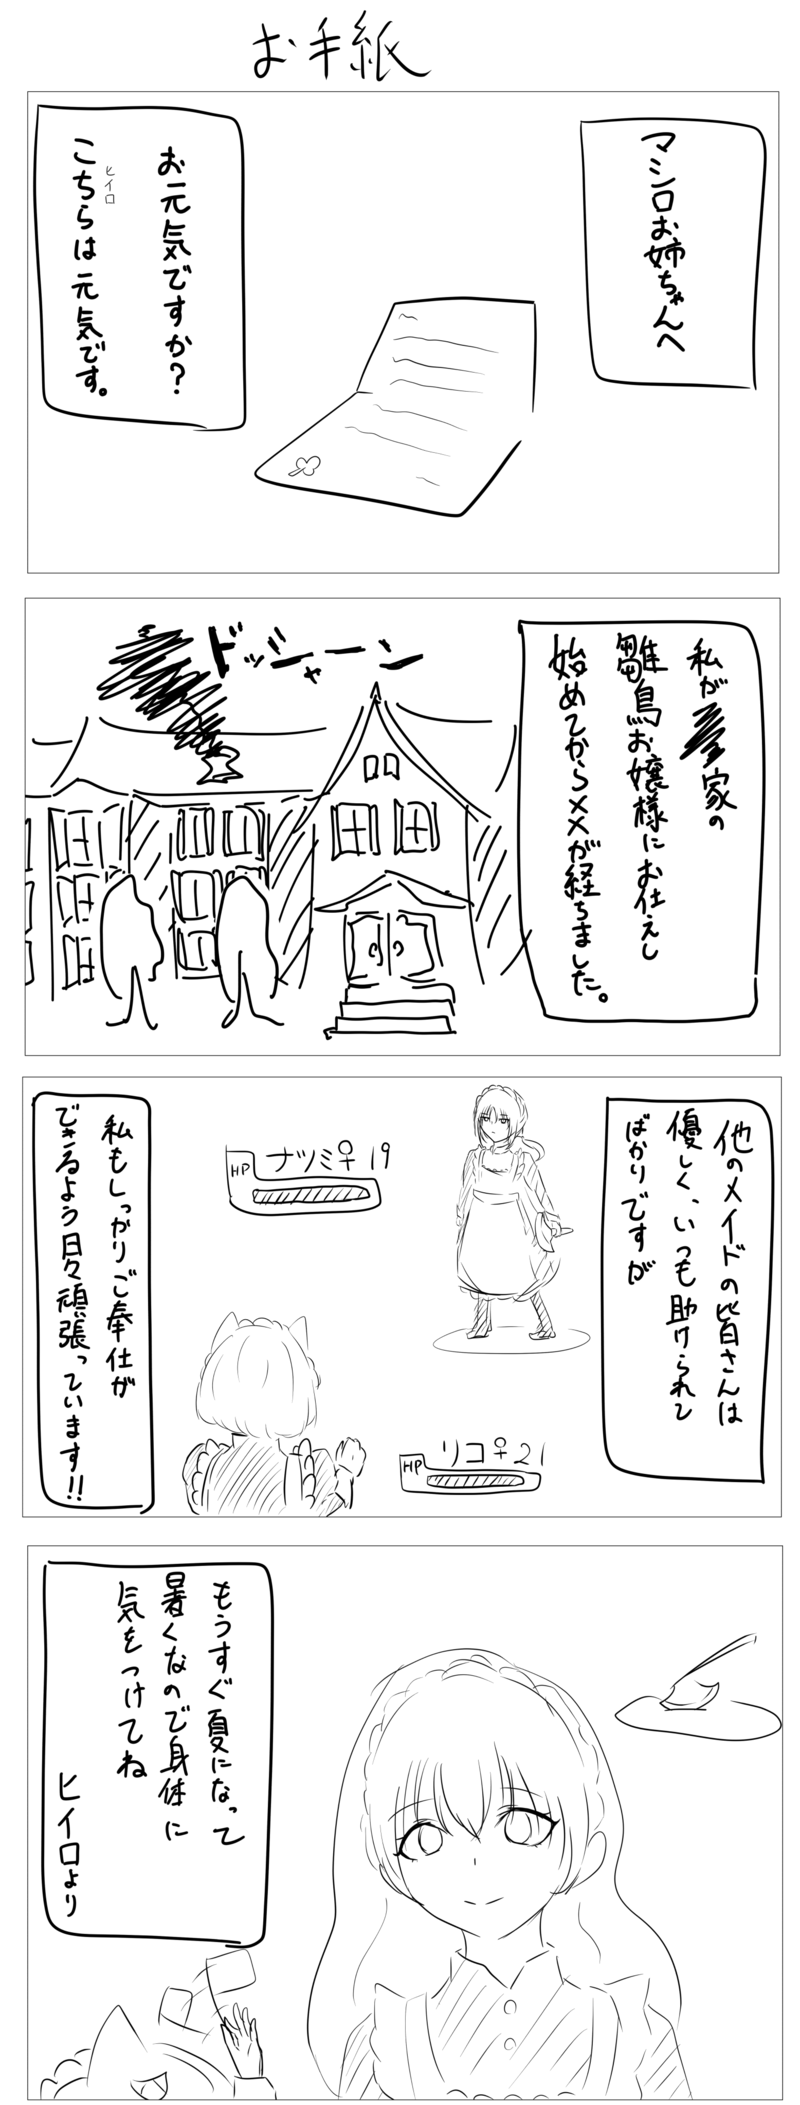 お手紙
マシロお姉ちゃんへ
お元気ですか?
ヒイロ
こちらは元気です。
私が
家の
雛鳥お嬢様にお仕えし
始めてから××が経ちました。
ドッシャーン
他のメイドの皆さんは
優しく、いつも助けられて
ばかりですが
HP ナツミ♀19
HP リコ♀21
私もしっかりご奉仕が
できるよう日々頑張っています!!
もうすぐ夏になって
暑くなので身体に
気をつけてね
ヒイロより